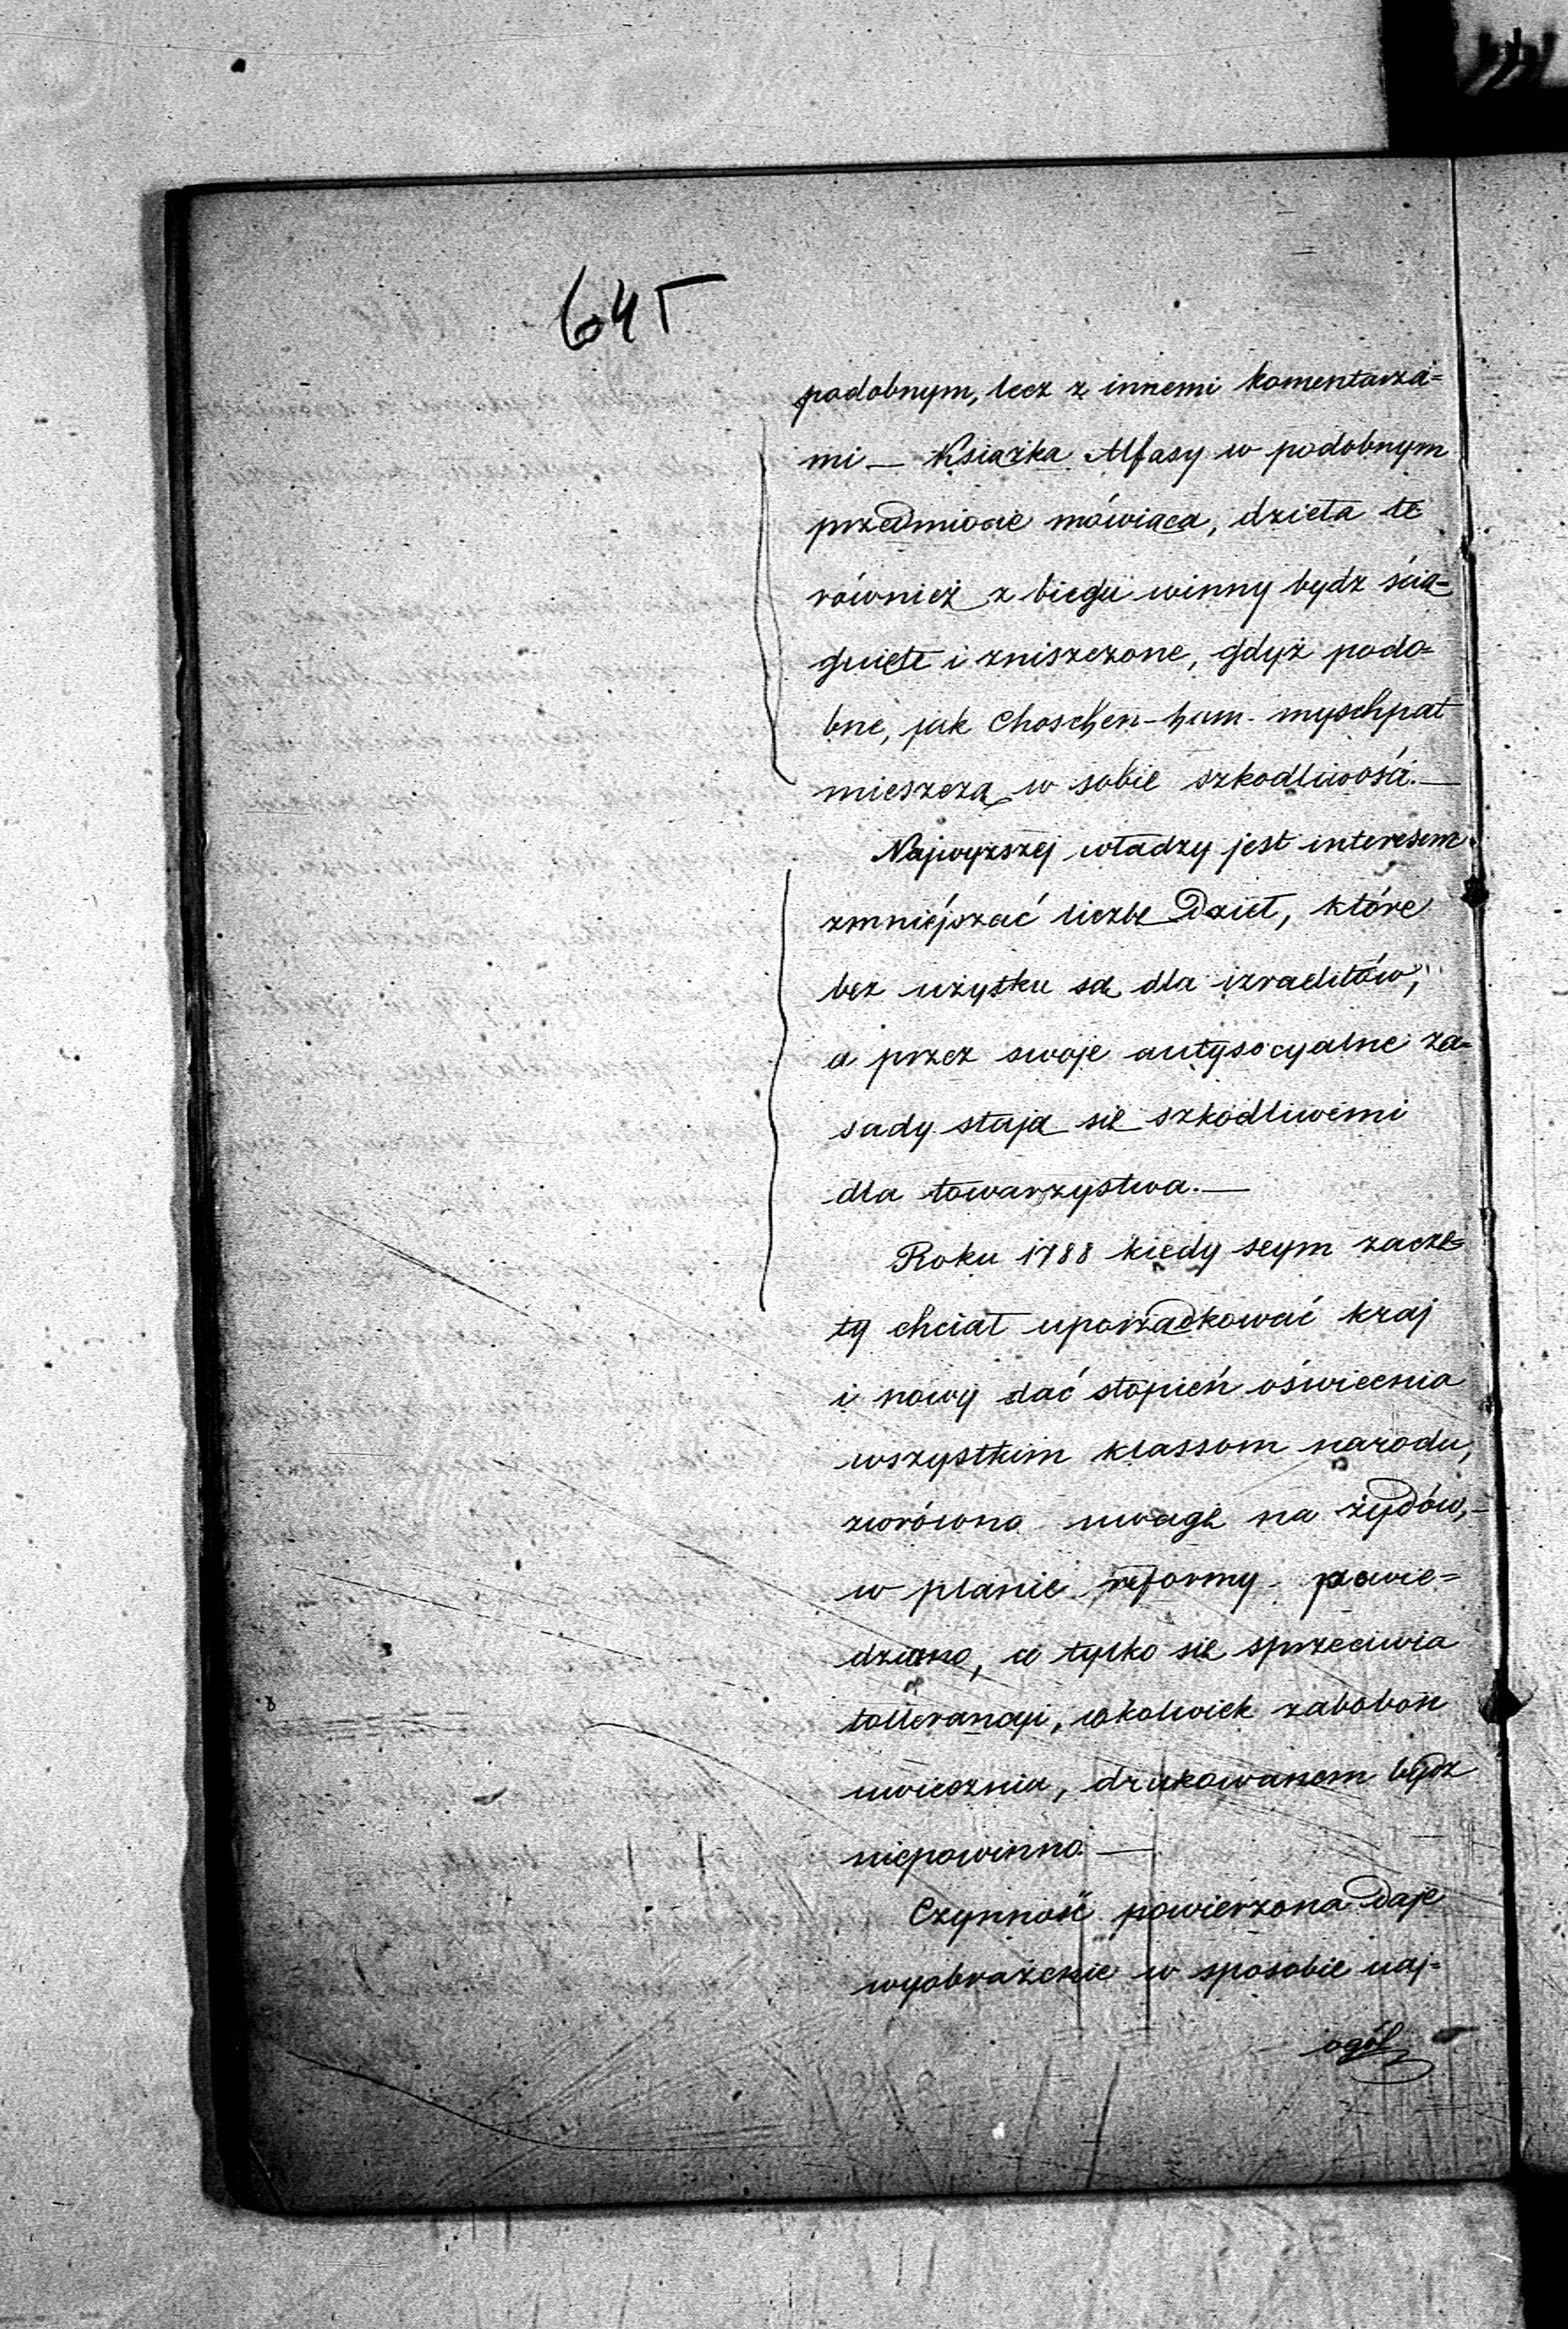 645
podobnym, lecz z innemi komentarza=
mi — Książka Alfasy w podobnym
przedmiocie mówiąca, dzieła te
również z biegu winny bydz ścią=
gnięte i zniszczone, gdyż podo=
bne, jak Choschen-ham-myschpat
mieszczą w sobie szkodliwość.—
Najwyższej władzy jest interesem
zmniejszać liczbę Dzieł, które
bez użytku są dla izraelitów,
a przez swoje antysocyalne za=
sady stają się szkodliwemi
dla towarzystwa.—
Roku 1788 kiedy seym zaczę=
ty chciał uporządkować kraj
i nowy dać stopień oświecenia
wszystkim klassom narodu,
zwrówno uwagę na żydów,—
w planie reformy powie=
dziano, co tylko się sprzeciwia
tollerancyi, cokolwiek zabobon
uwiecznia, drukowanem bydz
niepowinno.—
Czynność powierzona daje
wyobrażenie w sposobie naj=
ogól